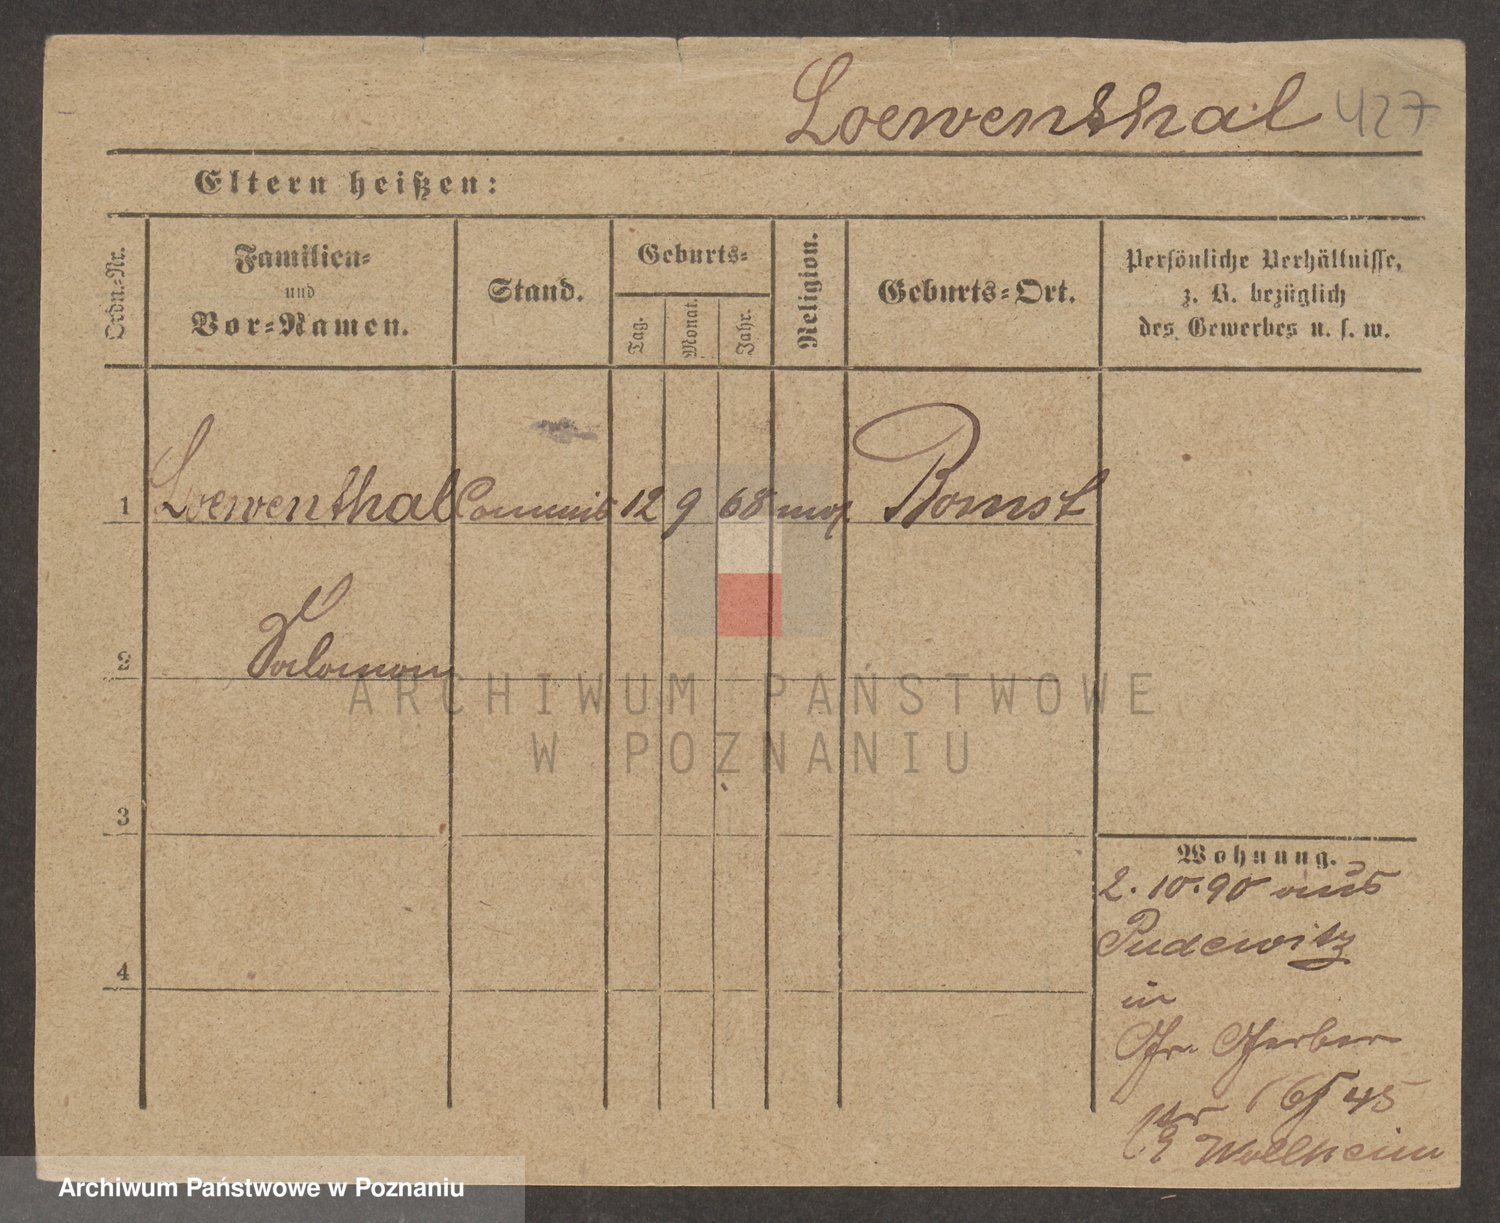 Loewenthal 427
Eltern heißen:
Ordn.-Nr.
Familien-
und
Vor-Namen.
Stand.
Geburts-
Tag.
Monat.
Jahr.
Religion.
Geburts-Ort.
Persönliche Verhältnisse,
z. B. bezüglich
des Gewerbes u. s. w.
1 Loewenthal Commis 12 9 68 mos. Bomst
2 Salomon
3
4
Wohnung.
2.10.90 aus
Pudewitz
in
Gr. Gerber
45
Wollheim
ARCHIWUM PAŃSTWOWE
W POZNANIU
Archiwum Państwowe w Poznaniu